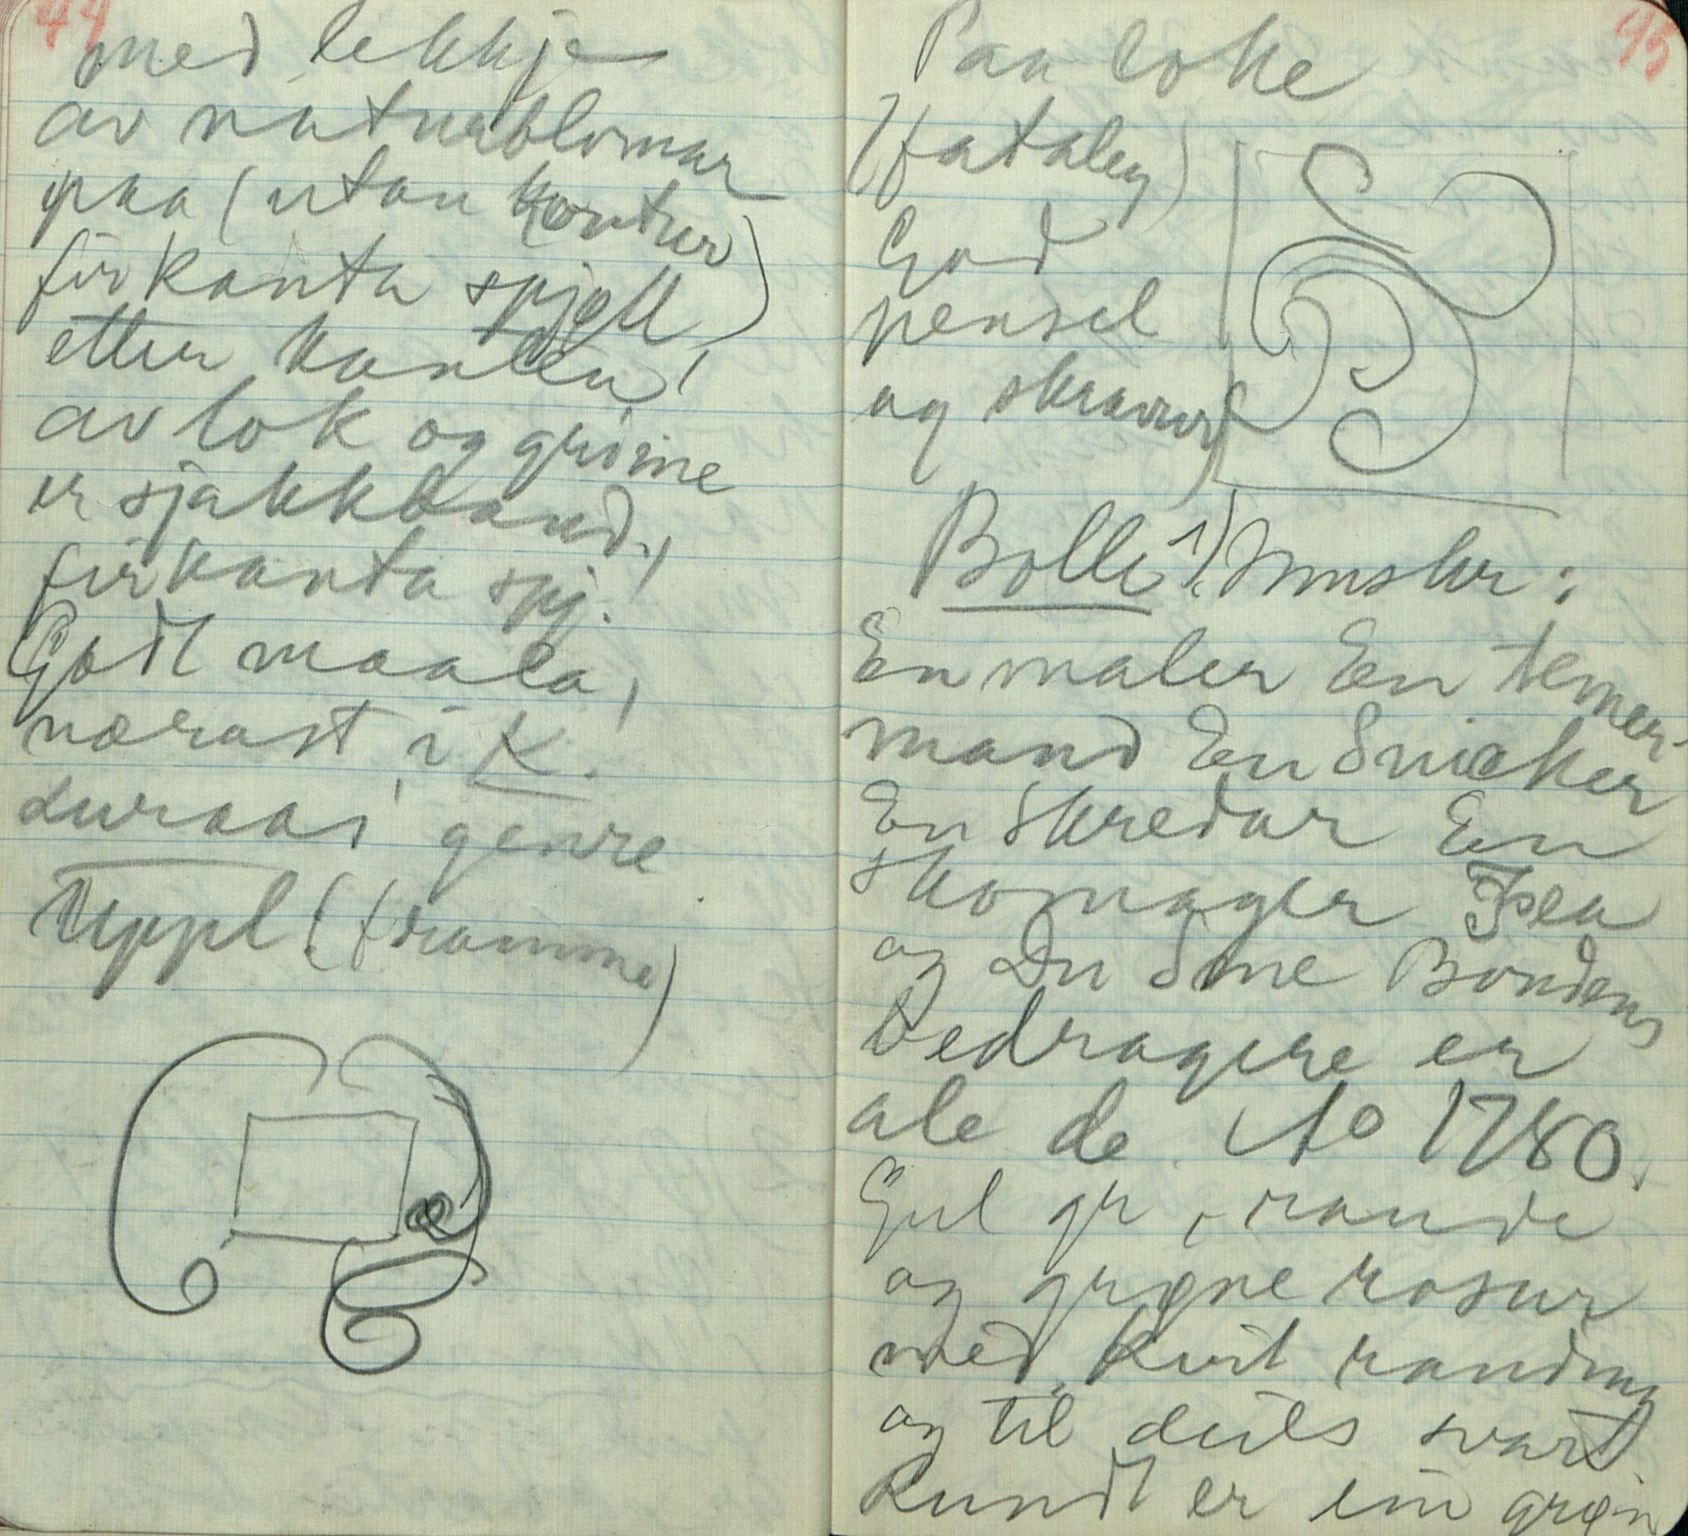 44
med lekkje
av naturblomar
paa (utan kontur)
firkanta spjell,
etter kanten,
av lok og grime
er sjakkband,
firkanta spj.
Godt maala,
nærast i K.
duraas genre
Uppl (framme)
45
Paa loke
(fataley)
God
pensel
og skravur
Bolle 1) Mynster:
En maler En temer-
mand En Snicker
En Skredar En
Skomager Fea
og Du Sme Bondens
Bedragere er
ale de Ao 1780.
Gul gr, rande
og grøne rosur
med kvit randing
og til deils svart
Rundt er ein grøn